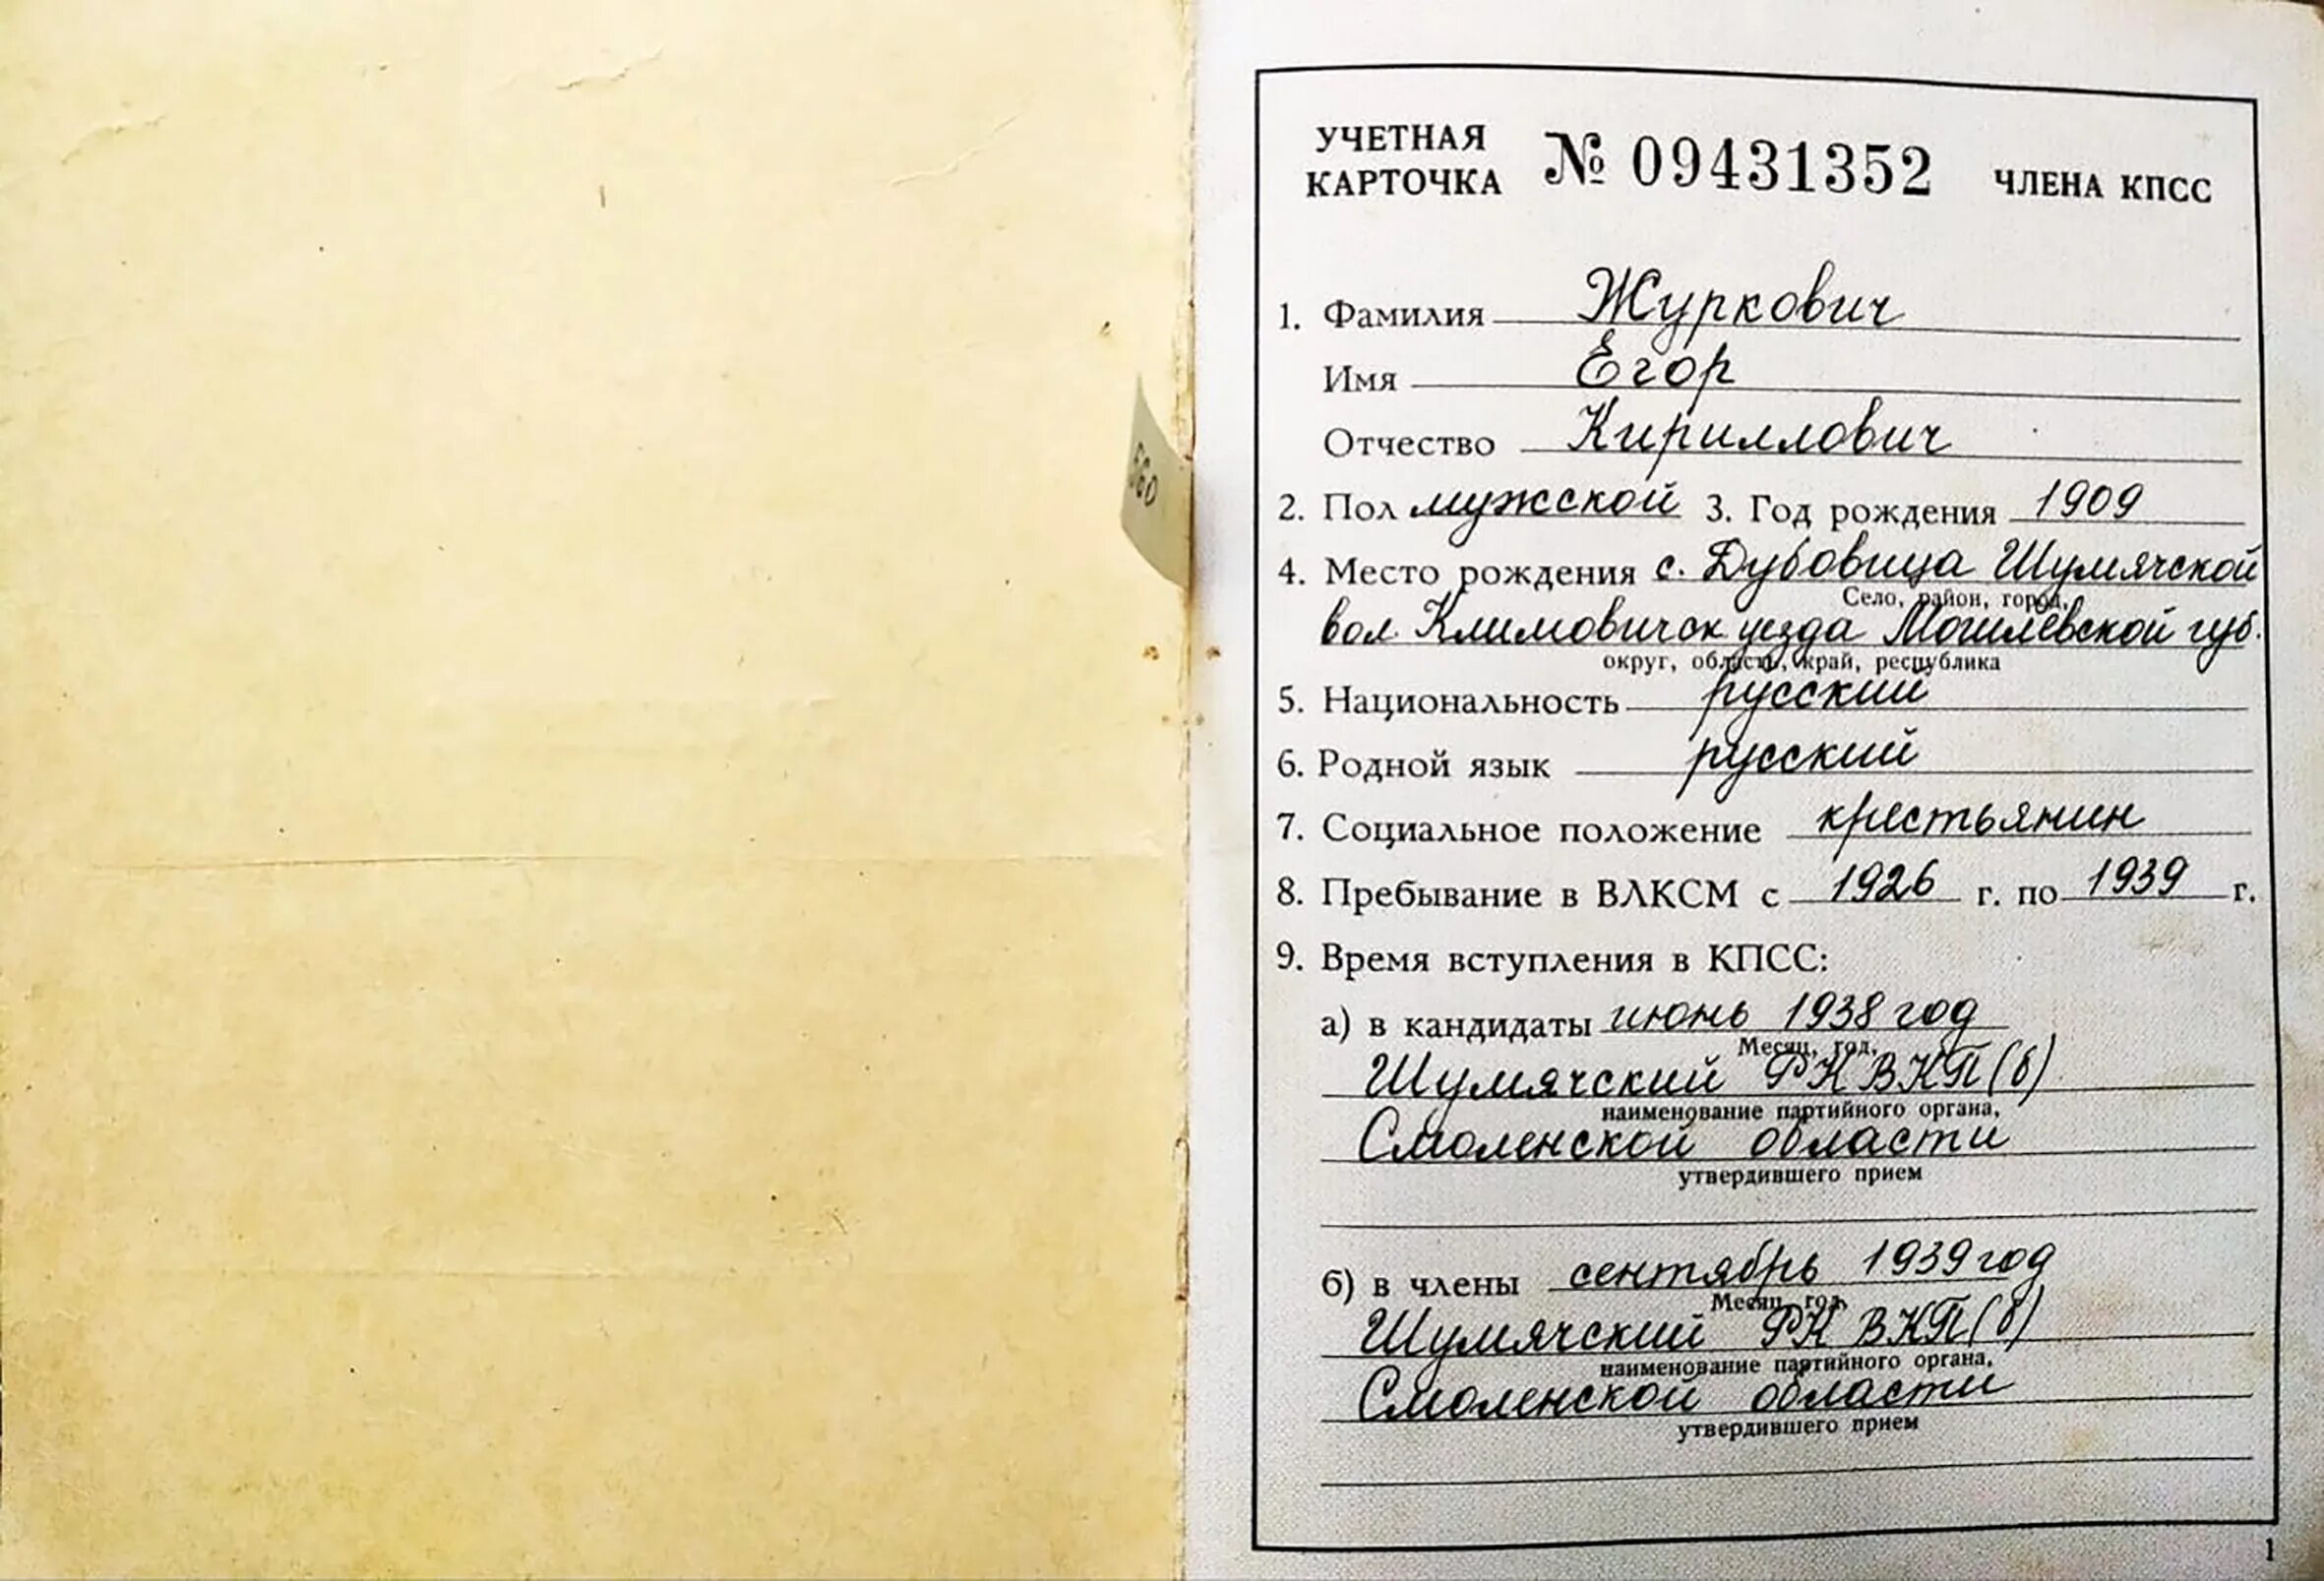 560
УЧЕТНАЯ
КАРТОЧКА № 09431352 ЧЛЕНА КПСС
1. Фамилия Журкович
Имя Егор
Отчество Кириллович
2. Пол мужской 3. Год рождения 1909
4. Место рождения с. Дубовица Шумячской
Село, район, город,
вол. Климовичск уезда Могилевской губ.
округ, область, край, республика
5. Национальность русский
6. Родной язык русский
7. Социальное положение крестьянин
8. Пребывание в ВЛКСМ с 1926 г. по 1939 г.
9. Время вступления в КПСС:
а) в кандидаты июнь 1938 год
Месяц, год,
Шумячский РК ВКП(б)
наименование партийного органа,
Смоленской области
утвердившего прием
б) в члены сентябрь 1939 год
Месяц, год,
Шумячский РК ВКП(б)
наименование партийного органа,
Смоленской области
утвердившего прием
1